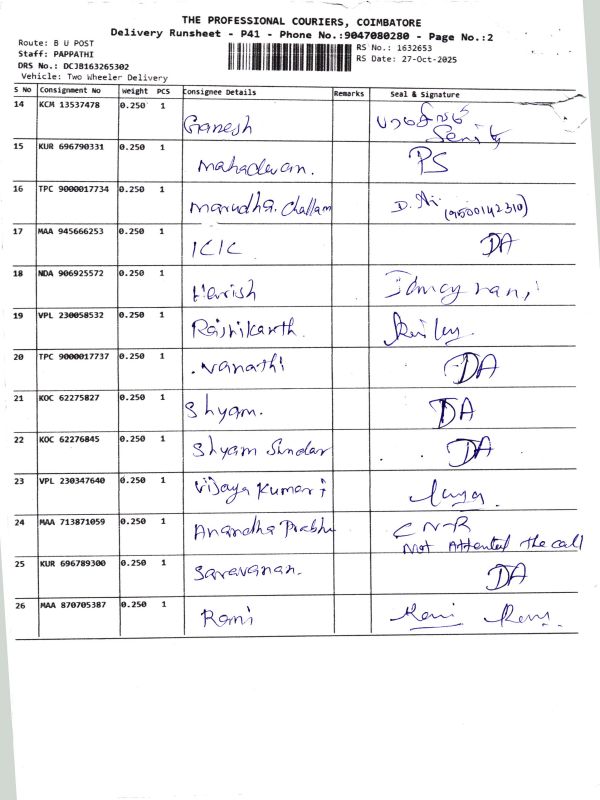 THE PROFESSIONAL COURIERS, COIMBATORE
Delivery Runsheet - P41 - Phone No.:9047080280 - Page No.:2
Route: B U POST
Staff: PAPPATHI
DRS No.: DCJB163265302
Vehicle: Two Wheeler Delivery
RS No.: 1632653
RS Date: 27-Oct-2025
S No Consignment No Weight PCS Consignee Details Remarks Seal & Signature
14 KCM 13537478 0.250 1 Ganesh
15 KUR 696790331 0.250 1 Mahadevan. PS
16 TPC 9000017734 0.250 1 Marudha.Challam D. (9500142310)
17 MAA 945666253 0.250 1 ICIC DA
18 NDA 906925572 0.250 1 Harish
19 VPL 230058532 0.250 1 Rajnikanth.
20 TPC 9000017737 0.250 1 .Vanathi DA
21 KOC 62275827 0.250 1 Shyam. DA
22 KOC 62276845 0.250 1 Shyam Sundar DA
23 VPL 230347640 0.250 1 Vijaya Kumari
24 MAA 713871059 0.250 1 Anandha Prabhu C N-R
Not Attented the call
25 KUR 696789300 0.250 1 Saravanan. DA
26 MAA 870705387 0.250 1 Rani